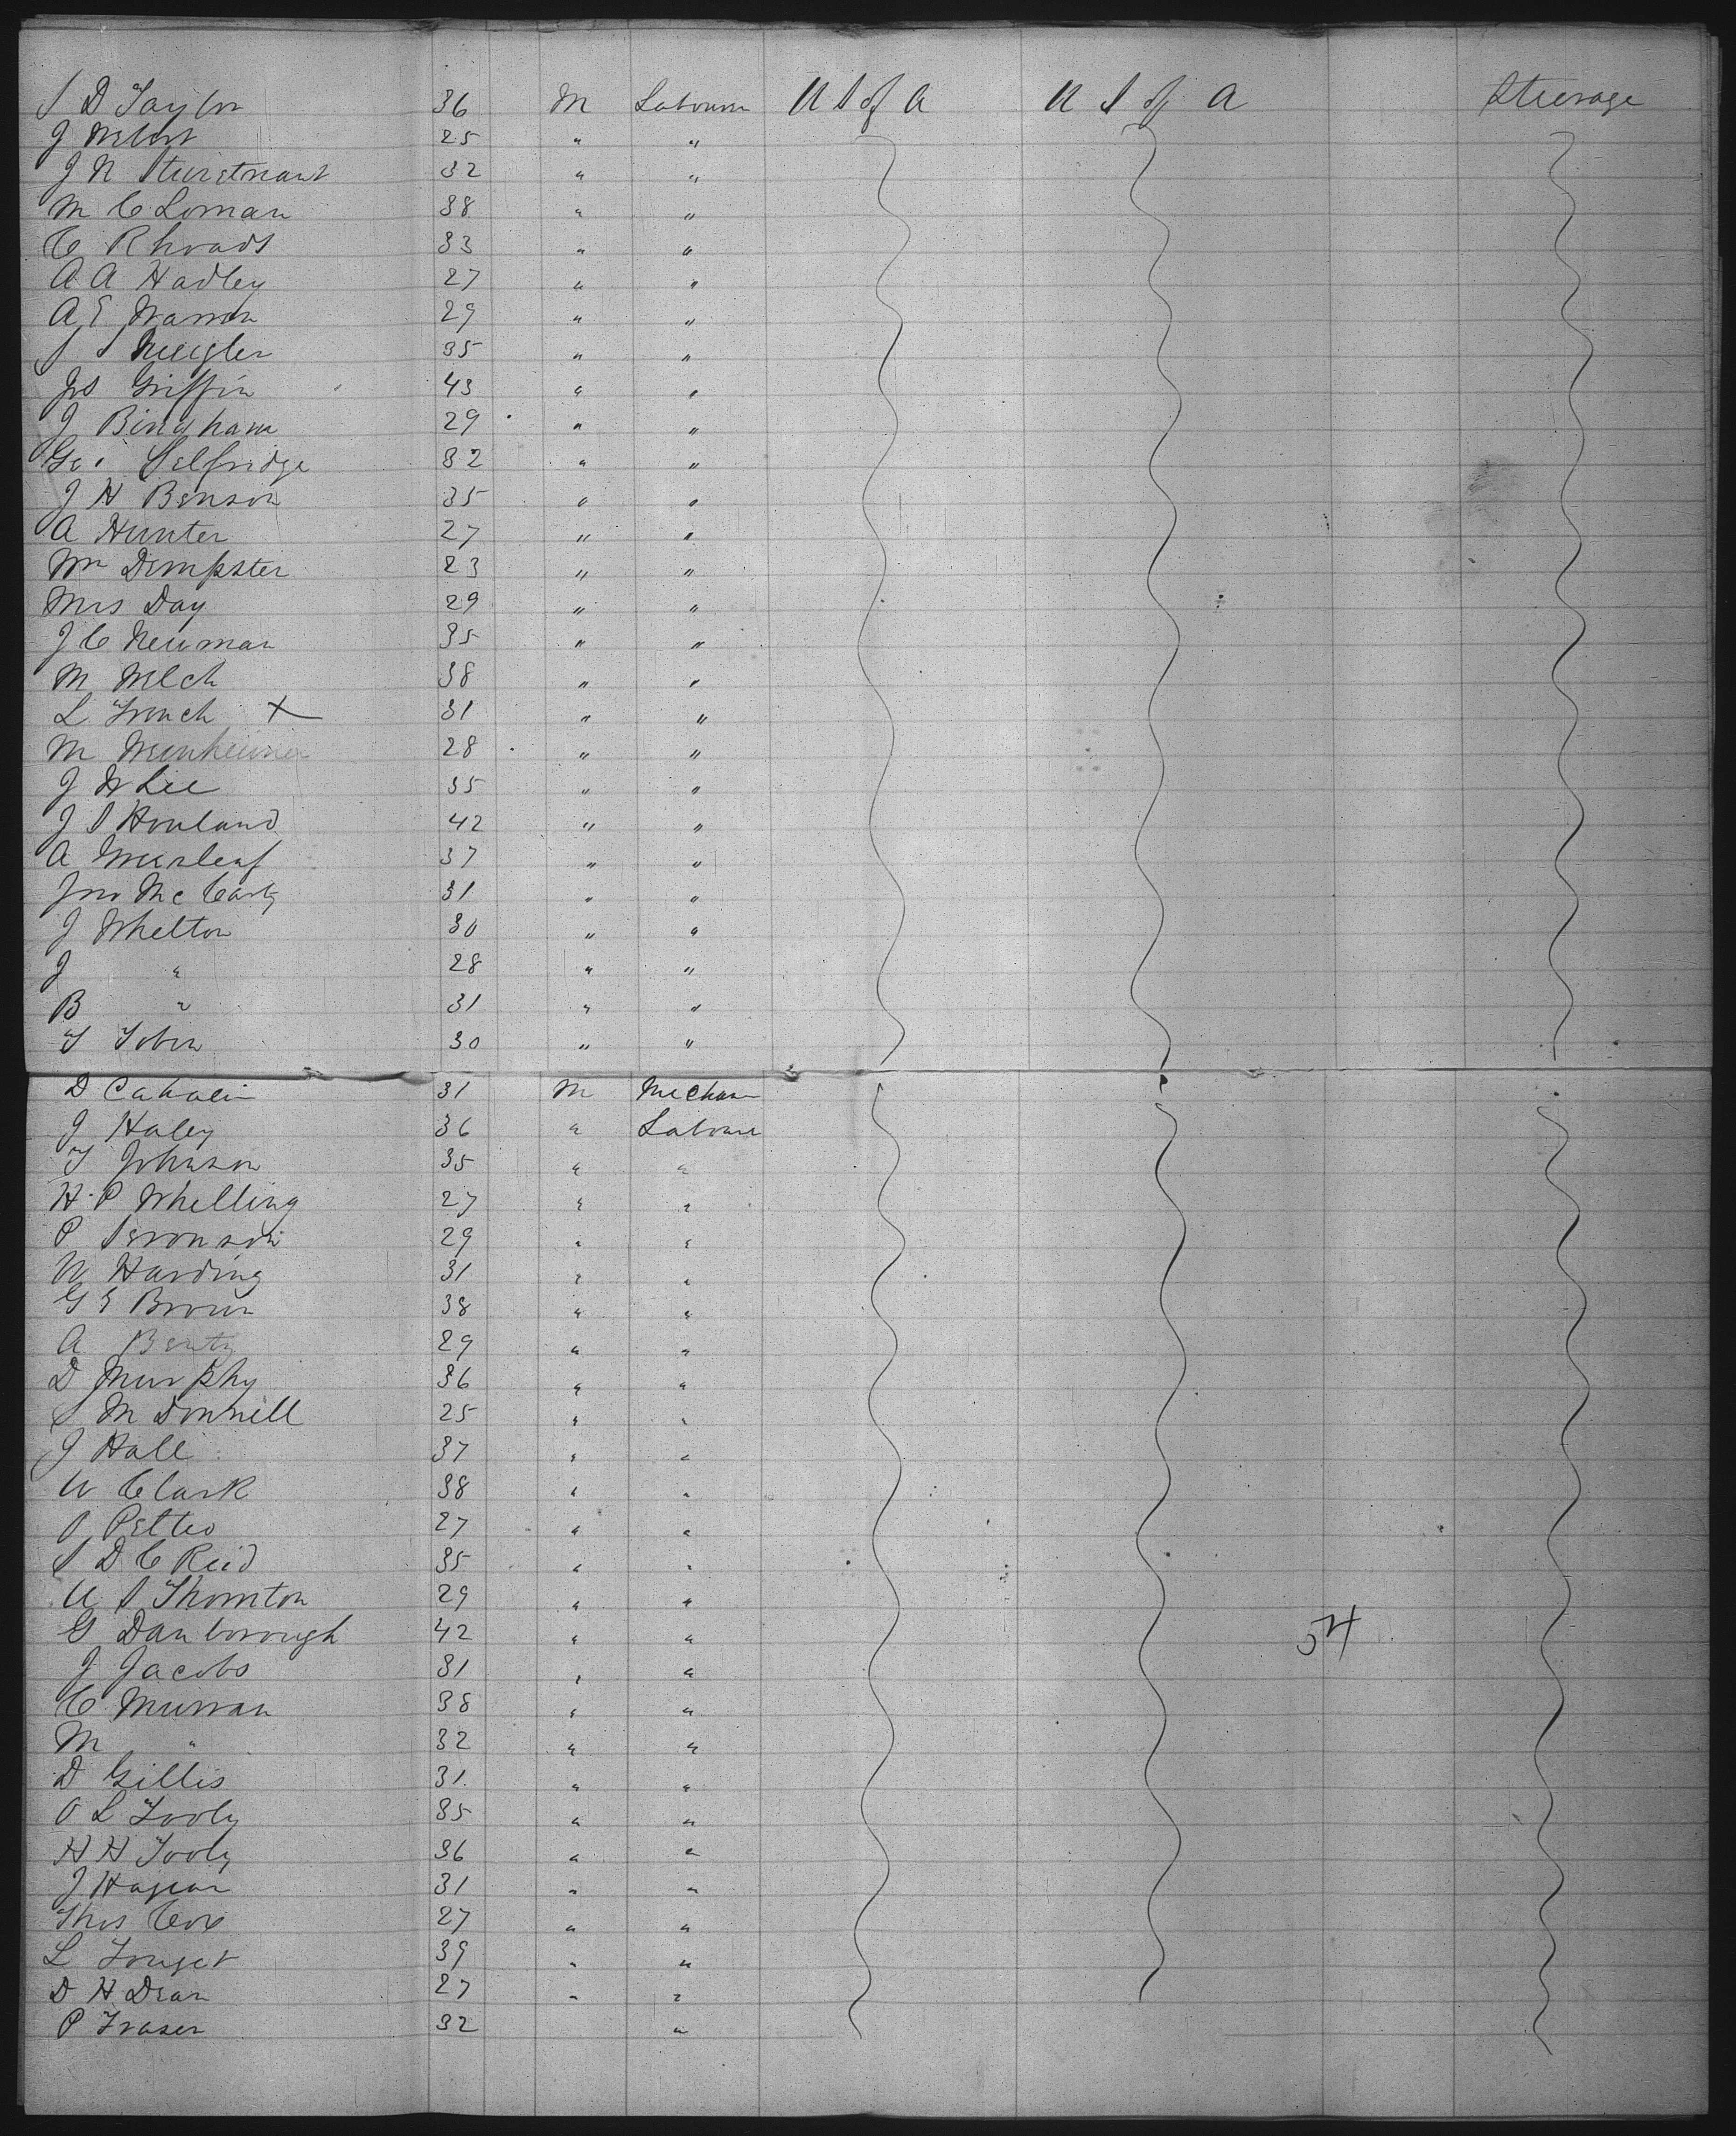 S D Taylor 36 M Labourer U S of A U S of A Steerage
J Welsh 25 " "
J N Sturetevant 32 " "
M C Loman 38 " "
C Rhoads 33 " "
A A Hadley 27 " "
A E Warren 29 " "
S S 35 " "
Jos Griffin 43 " "
J Bingham 29 " "
Geo Selfridge 32 " "
J H Benson 35 " "
A Hunter 27 " "
Wm Dempster 23 " "
Mrs Day 29 " "
J C Newman 35 " "
M Welch 38 " "
L French X 31 " "
M 28 " "
J W Lee 35 " "
J S Howland 42 " "
A Greenleaf 37 " "
Jno McCarty 31 " "
J Whelton 30 " "
J " 28 " "
B " 31 " "
T Tobin 30 " "
D Cahalin 31 M Mechan
J Haley 36 " Laboure
T Johnson 35 " "
H P Whelling 27 " "
P 29 " "
W Harding 31 " "
G E Brown 38 " "
A 29 " "
D Murphy 36 " "
S M Donnell 25 " "
J Hall 37 " "
W Clark 38 " "
27 " "
S D C Reid 35 " "
W S Thornton 29 " "
G Danborough 42 " " 54
J Jacobs 31 " "
C Murran 38 " "
M " 32 " "
D Gillis 31 " "
O L Tooly 35 " "
H H Tooly 36 " "
J 31 " "
Thos Cox 27 " "
L 39 " "
D H Dean 27 " "
P Fraser 32 "